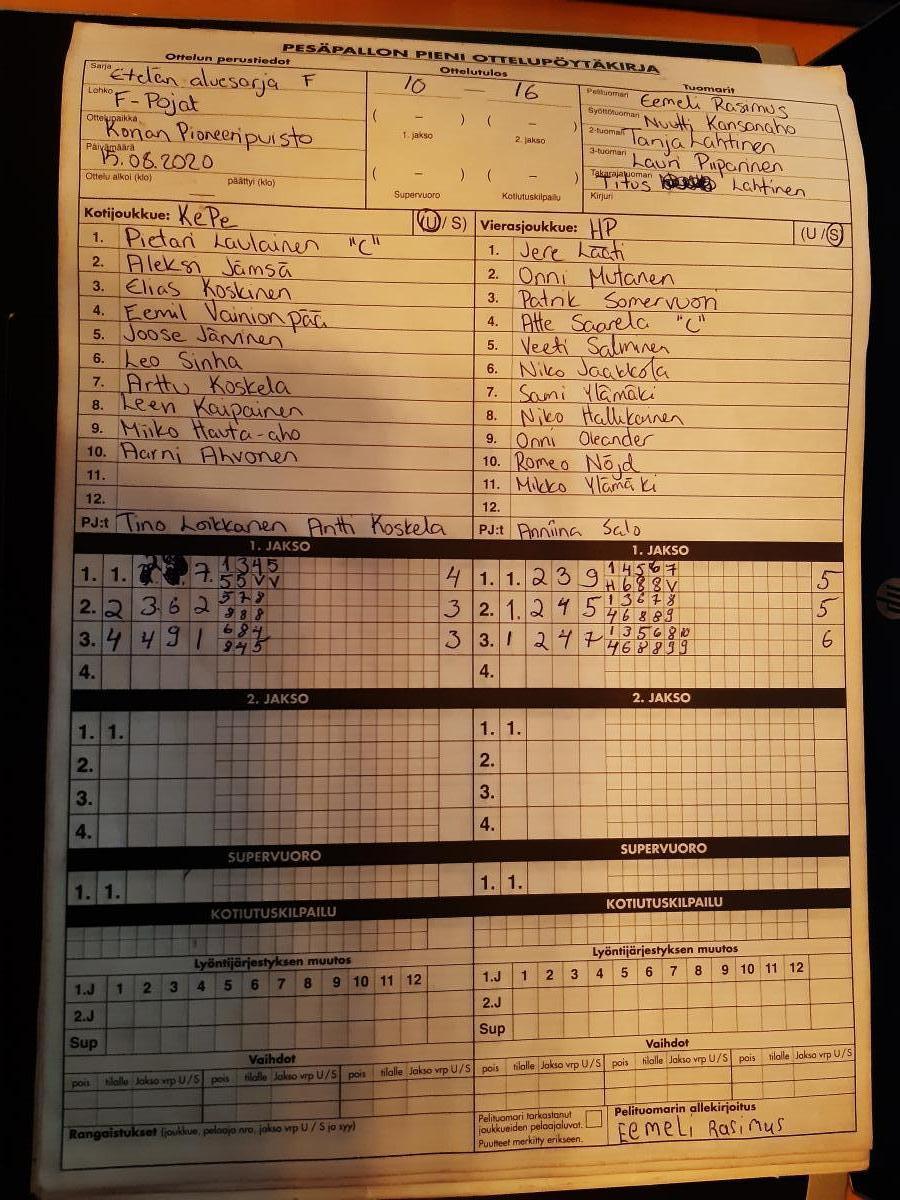 PESÄPALLON PIENI OTTELUPÖYTÄKIRJA
Ottelun perustiedot
Ottelutulos
Tuomarit
Sarja Etelän aluesarja F
Lohko F-Pojat
Ottelupaikka Konan Pioneeripuisto
Päivämäärä 15.08.2020
Ottelu alkoi (klo) päättyi (klo)
10 — 16
( – ) ( – )
1. jakso 2. jakso
( – ) ( – )
Supervuoro Kotiutuskilpailu
Pelituomari Eemeli Rasimus
Syöttötuomari Nuutti Kansanaho
2-tuomari Tanja Lahtinen
3-tuomari Lauri Piiparinen
Takarajatuomari Titus Lahtinen
Kirjuri
Kotijoukkue: KePe (U / S)
1. Pietari Laulainen "C"
2. Aleksi Jämsä
3. Elias Koskinen
4. Eemil Vainionpää
5. Joose Järvinen
6. Leo Sinha
7. Arttu Koskela
8. Leen Kaipainen
9. Miiko Hauta-aho
10. Aarni Ahvonen
11.
12.
PJ:t Tino Loikkanen Antti Koskela
Vierasjoukkue: HP (U / S)
1. Jere Lääti
2. Onni Mutanen
3. Patrik Somervuori
4. Atte Saarela "C"
5. Veeti Salminen
6. Niko Jaakkola
7. Sami Ylämäki
8. Niko Hallikainen
9. Onni Oleander
10. Romeo Nöjd
11. Mikko Ylämäki
12.
PJ:t Anniina Salo
1. JAKSO
1. 1. 7 1 3 4 5 4
5 5 V V
2. 2 3 6 2 5 7 8 3
8 8 8
3. 4 4 9 1 6 8 4 3
8 4 5
4.
1. JAKSO
1. 1. 2 3 9 1 4 5 6 7 5
H 6 8 8 V
2. 1. 2 4 5 1 3 6 7 8 5
4 6 8 8 9
3. 1 2 4 7 1 3 5 6 8 10 6
4 6 8 8 9 9
4.
2. JAKSO
1. 1.
2.
3.
4.
2. JAKSO
1. 1.
2.
3.
4.
SUPERVUORO
1. 1.
SUPERVUORO
1. 1.
KOTIUTUSKILPAILU
KOTIUTUSKILPAILU
Lyöntijärjestyksen muutos
1.J 1 2 3 4 5 6 7 8 9 10 11 12
2.J
Sup
Lyöntijärjestyksen muutos
1.J 1 2 3 4 5 6 7 8 9 10 11 12
2.J
Sup
Vaihdot
pois tilalle Jakso vrp U/S pois tilalle Jakso vrp U/S pois tilalle Jakso vrp U/S
Vaihdot
pois tilalle Jakso vrp U/S pois tilalle Jakso vrp U/S pois tilalle Jakso vrp U/S
Rangaistukset (joukkue, pelaaja nro, jakso vrp U / S ja syy)
Pelituomari tarkastanut
joukkueiden pelaajaluvat.
Puutteet merkitty erikseen.
Pelituomarin allekirjoitus
EEMELi RASIMUS